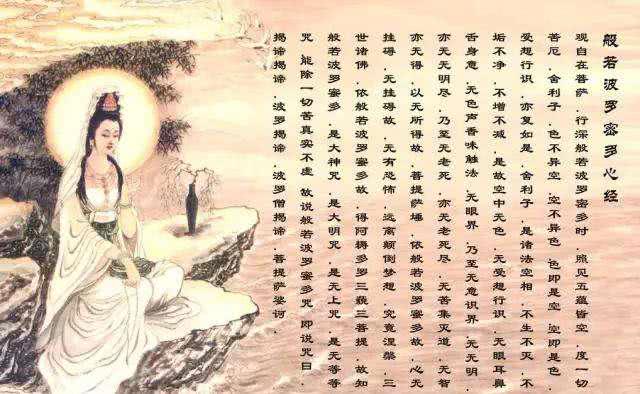 般若波罗密多心经
观自在菩萨.行深般若波罗密多时.照见五蕴皆空.度一切
苦厄.舍利子.色不异空.空不异色.色即是空.空即是色.
受想行识.亦复如是.舍利子.是诸法空相.不生不灭.不
垢不净.不增不减.是故空中无色.无受想行识.无眼耳鼻
舌身意.无色声香味触法.无眼界.乃至无意识界.无无明.
亦无无明尽.乃至无老死.亦无老死尽.无苦集灭道.无智
亦无得.以无所得故.菩提萨埵.依般若波罗密多故.心无
挂碍.无挂碍故.无有恐怖.远离颠倒梦想.究竟涅槃.三
世诸佛.依般若波罗蜜多故.得阿耨多罗三藐三菩提.故知
般若波罗蜜多.是大神咒.是大明咒.是无上咒.是无等等
咒 能除一切苦真实不虚 故说般若波罗蜜多咒 即说咒曰.
揭谛揭谛.波罗揭谛.波罗僧揭谛.菩提萨婆诃.